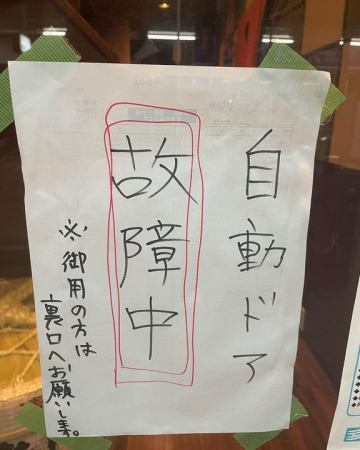 自動ドア
故障中
※御用の方は
裏口へお願いします。